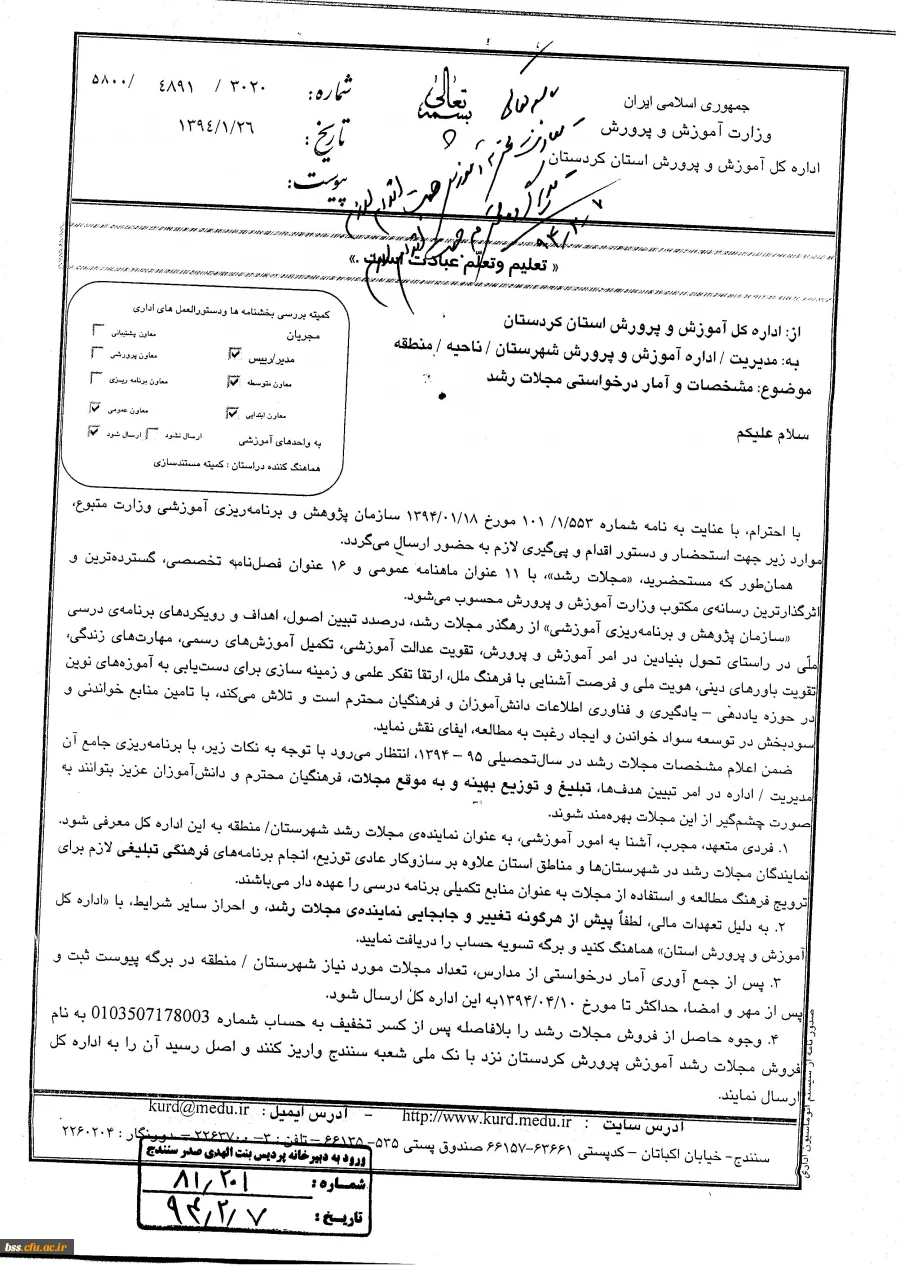 جمهوری اسلامی ایران
وزارت آموزش و پرورش
اداره کل آموزش و پرورش استان کردستان
بسمه تعالی
شماره: ۳۰۲۰ / ۴۸۹۱ /۵۸۰۰
تاریخ: ۱۳۹۴/۱/۲۶
پیوست:
« تعلیم وتعلّم عبادت است .»
از: اداره کل آموزش و پرورش استان کردستان
به: مدیریت / اداره آموزش و پرورش شهرستان / ناحیه / منطقه
موضوع: مشخصات و آمار درخواستی مجلات رشد
سلام علیکم
کمیته بررسی بخشنامه ها ودستورالعمل های اداری
مجریان
معاون پشتیبانی
مدیر/رییس
معاون پرورشی
معاون متوسطه
معاون برنامه ریزی
معاون ابتدایی
معاون عمومی
به واحدهای آموزشی
ارسال نشود
ارسال شود
هماهنگ کننده دراستان : کمیته مستندسازی
با احترام، با عنایت به نامه شماره ۱/۵۵۳/ ۱۰۱ مورخ ۱۳۹۴/۰۱/۱۸ سازمان پژوهش و برنامه‌ریزی آموزشی وزارت متبوع،
موارد زیر جهت استحضار و دستور اقدام و پی‌گیری لازم به حضور ارسال می‌گردد.
همان‌طور که مستحضرید، «مجلات رشد»، با ۱۱ عنوان ماهنامه عمومی و ۱۶ عنوان فصل‌نامه تخصصی، گسترده‌ترین و
اثرگذارترین رسانه‌ی مکتوب وزارت آموزش و پرورش محسوب می‌شود.
«سازمان پژوهش و برنامه‌ریزی آموزشی» از رهگذر مجلات رشد، درصدد تبیین اصول، اهداف و رویکردهای برنامه‌ی درسی
ملّی در راستای تحول بنیادین در امر آموزش و پرورش، تقویت عدالت آموزشی، تکمیل آموزش‌های رسمی، مهارت‌های زندگی،
تقویت باورهای دینی، هویت ملی و فرصت آشنایی با فرهنگ ملل، ارتقا تفکر علمی و زمینه سازی برای دست‌یابی به آموزه‌های نوین
در حوزه یاددهی – یادگیری و فناوری اطلاعات دانش‌آموزان و فرهنگیان محترم است و تلاش می‌کند، با تامین منابع خواندنی و
سودبخش در توسعه سواد خواندن و ایجاد رغبت به مطالعه، ایفای نقش نماید.
ضمن اعلام مشخصات مجلات رشد در سال‌تحصیلی ۹۵ – ۱۳۹۴، انتظار می‌رود با توجه به نکات زیر، با برنامه‌ریزی جامع آن
مدیریت / اداره در امر تبیین هدف‌ها، تبلیغ و توزیع بهینه و به موقع مجلات، فرهنگیان محترم و دانش‌آموزان عزیز بتوانند به
صورت چشم‌گیر از این مجلات بهره‌مند شوند.
۱. فردی متعهد، مجرب، آشنا به امور آموزشی، به عنوان نماینده‌ی مجلات رشد شهرستان/ منطقه به این اداره کل معرفی شود.
نمایندگان مجلات رشد در شهرستان‌ها و مناطق استان علاوه بر سازوکار عادی توزیع، انجام برنامه‌های فرهنگی تبلیغی لازم برای
ترویج فرهنگ مطالعه و استفاده از مجلات به عنوان منابع تکمیلی برنامه درسی را عهده دار می‌باشند.
۲. به دلیل تعهدات مالی، لطفاً پیش از هرگونه تغییر و جابجایی نماینده‌ی مجلات رشد، و احراز سایر شرایط، با «اداره کل
آموزش و پرورش استان» هماهنگ کنید و برگه تسویه حساب را دریافت نمایید.
۳. پس از جمع آوری آمار درخواستی از مدارس، تعداد مجلات مورد نیاز شهرستان / منطقه در برگه پیوست ثبت و
پس از مهر و امضا، حداکثر تا مورخ ۱۳۹۴/۰۴/۱۰به این اداره کل ارسال شود.
۴. وجوه حاصل از فروش مجلات رشد را بلافاصله پس از کسر تخفیف به حساب شماره 0103507178003 به نام
فروش مجلات رشد آموزش پرورش کردستان نزد با نک ملی شعبه سنندج واریز کنند و اصل رسید آن را به اداره کل
ارسال نمایند.
آدرس سایت : http://www.kurd.medu.ir - آدرس ایمیل : kurd@medu.ir
سنندج- خیابان اکباتان – کدپستی ۶۳۶۶۱-۶۶۱۵۷ صندوق پستی ۵۳۵- ۶۶۱۳۵ – تلفن : ۳- ۲۲۶۳۷۰۰ – دورنگار : ۲۲۶۰۲۰۴
ورود به دبیرخانه پردیس بنت الهدی صدر سنندج
شماره: ۸۱,۲۰۱
تاریخ: ۹۴,۲,۷
bss.cfu.ac.ir